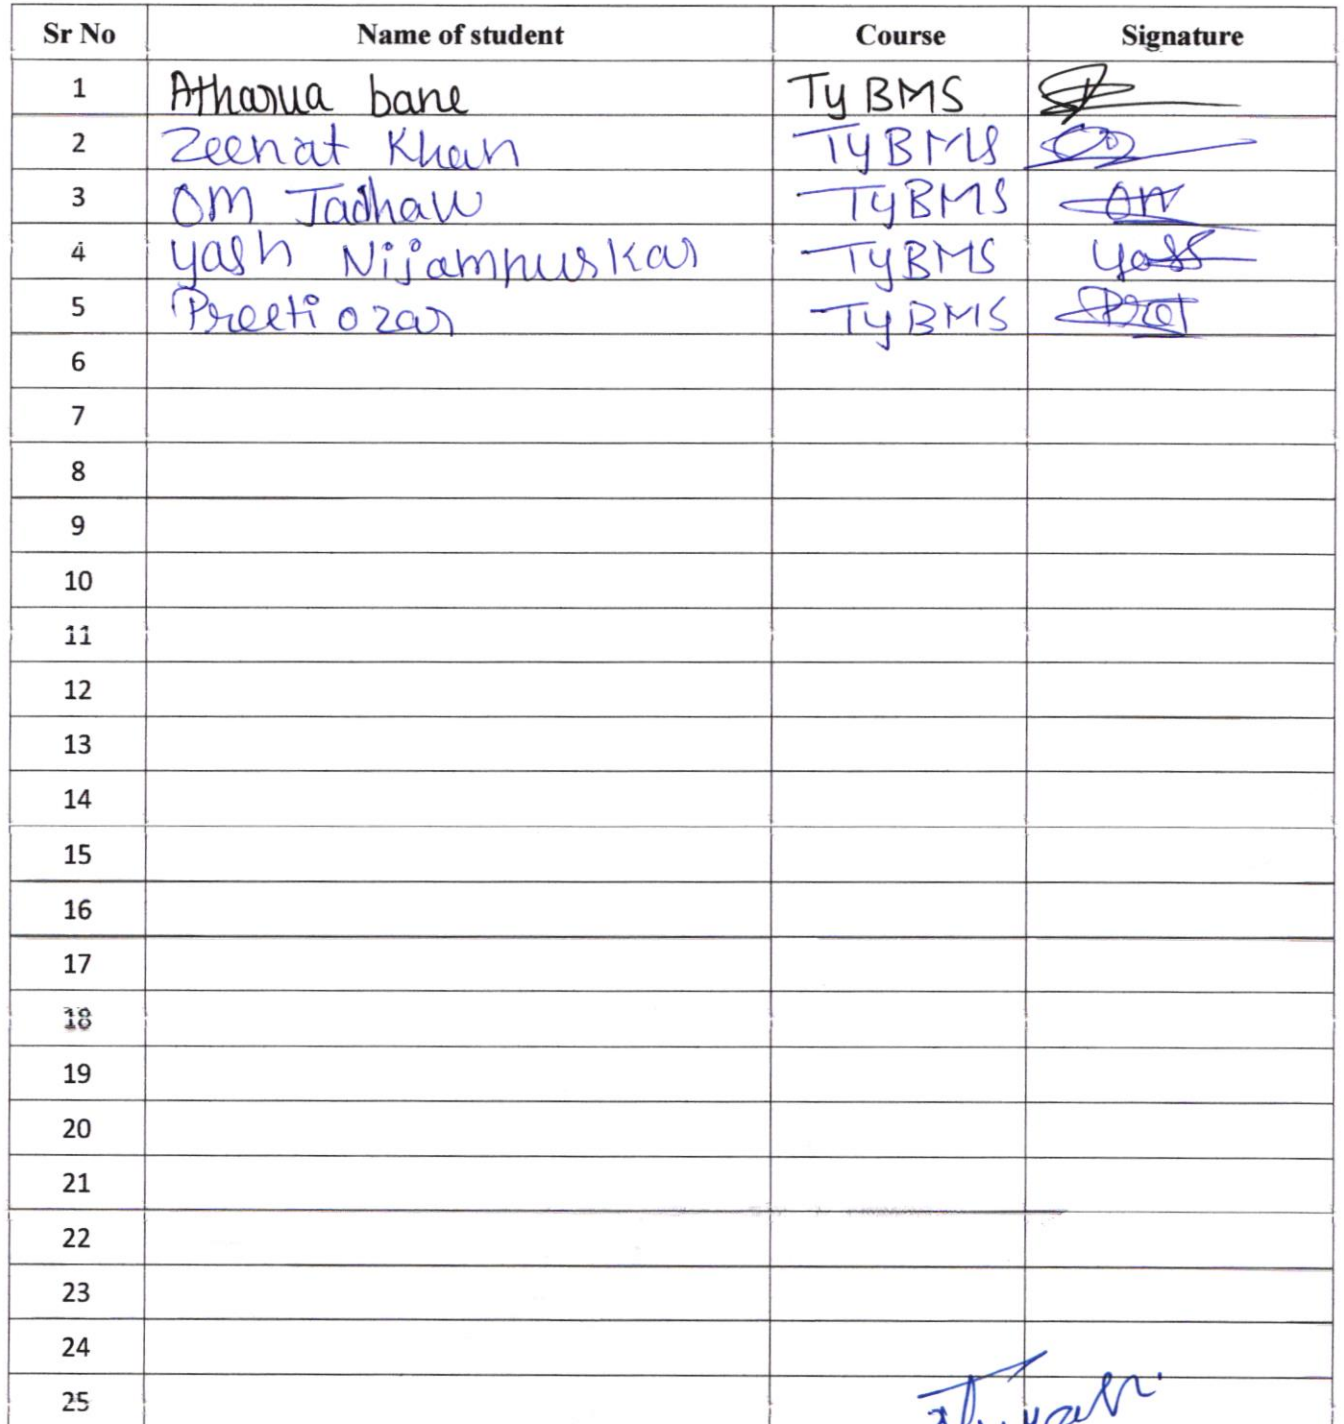 Sr No Name of student Course Signature
1 Atharva bane Ty BMS
2 Zeenat Khan TyBMS
3 OM Jadhav TyBMS om
4 yash Nijampurkar TyBMS yash
5 Preeti ozar TyBMS Preet
6
7
8
9
10
11
12
13
14
15
16
17
18
19
20
21
22
23
24
25